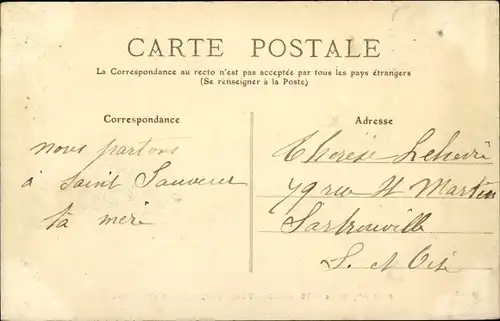 CARTE POSTALE
La Correspondance au recto n'est pas acceptée par tous les pays étrangers
(Se renseigner à la Poste)
Correspondance
nous partons
à Saint Sauveur
ta mere
Adresse
Therese
79 rue St Martin
Sartrouville
S. et Oise